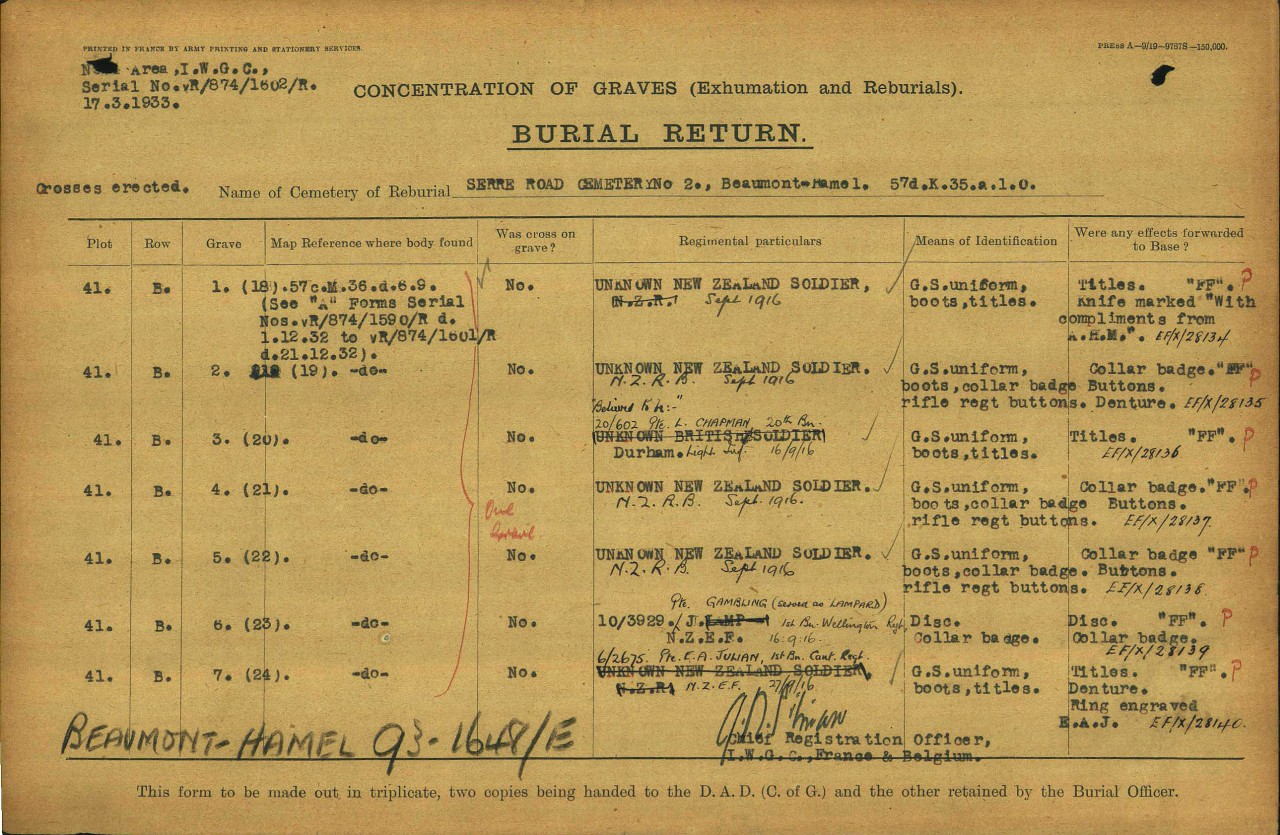 PRINTED IN FRANCE BY ARMY PRINTING AND STATIONERY SERVICES.
PRESS A—9/19—9787S—150,000.
Area,I.W.G.C.,
Serial No.vR/874/1602/R.
17.3.1933.
CONCENTRATION OF GRAVES (Exhumation and Reburials).
BURIAL RETURN.
Crosses erected.
Name of Cemetery of Reburial SERRE ROAD CEMETERY No 2., Beaumont-Hamel. 57d.K.35.a.1.0.
Plot Row Grave Map Reference where body found Was cross on grave? Regimental particulars Means of Identification Were any effects forwarded to Base?
41. B. 1. (18).57c.M.36.d.6.9. No. UNKNOWN NEW ZEALAND SOLDIER, G.S.uniform, Titles. "FF". P
(See "A" Forms Serial N.Z.R. Sept 1916 boots,titles. Knife marked "With
Nos.vR/874/1590/R d. compliments from
1.12.32 to vR/874/1601/R A.H.M.". EF/X/28134
d.21.12.32).
41. B. 2. (19). -do- No. UNKNOWN NEW ZEALAND SOLDIER. G.S.uniform, Collar badge."FF" P
N.Z.R.B. Sept 1916 boots,collar badge Buttons.
rifle regt buttons. Denture. EF/X/28135
"Believed to be:-"
20/602 Pte. L. CHAPMAN 20th Bn.
41. B. 3. (20). -do- No. UNKNOWN BRITISH SOLDIER G.S.uniform, Titles. "FF" P
Durham. Light Inf. 16/9/16 boots,titles. EF/X/28136
41. B. 4. (21). -do- No. UNKNOWN NEW ZEALAND SOLDIER. G.S.uniform, Collar badge."FF". P
N.Z.R.B. Sept. 1916. boots,collar badge Buttons.
rifle regt buttons. EF/X/28137.
One
Grave
41. B. 5. (22). -do- No. UNKNOWN NEW ZEALAND SOLDIER. G.S.uniform, Collar badge "FF" P
N.Z.R.B. Sept 1916 boots,collar badge. Buttons.
rifle regt buttons. EF/X/28138.
Pte. GAMBLING (served as LAMPARD)
41. B. 6. (23). -do- No. 10/3929. J. 1st Bn. Wellington Regt, Disc. Disc. "FF". P
N.Z.E.F. 16.9.16. Collar badge. Collar badge.
EF/X/28139
6/2675. Pte. E.A. JULIAN, 1st Bn. Cant. Regt.
41. B. 7. (24). -do- No. UNKNOWN NEW ZEALAND SOLDIER, G.S.uniform, Titles. "FF". P
N.Z.R. N.Z.E.F. 27/9/16 boots,titles. Denture.
Ring engraved
E.A.J. EF/X/28140.
BEAUMONT-HAMEL 93-1648/E
Chief Registration Officer,
I.W.G.C.,France & Belgium.
This form to be made out in triplicate, two copies being handed to the D. A. D. (C. of G.) and the other retained by the Burial Officer.